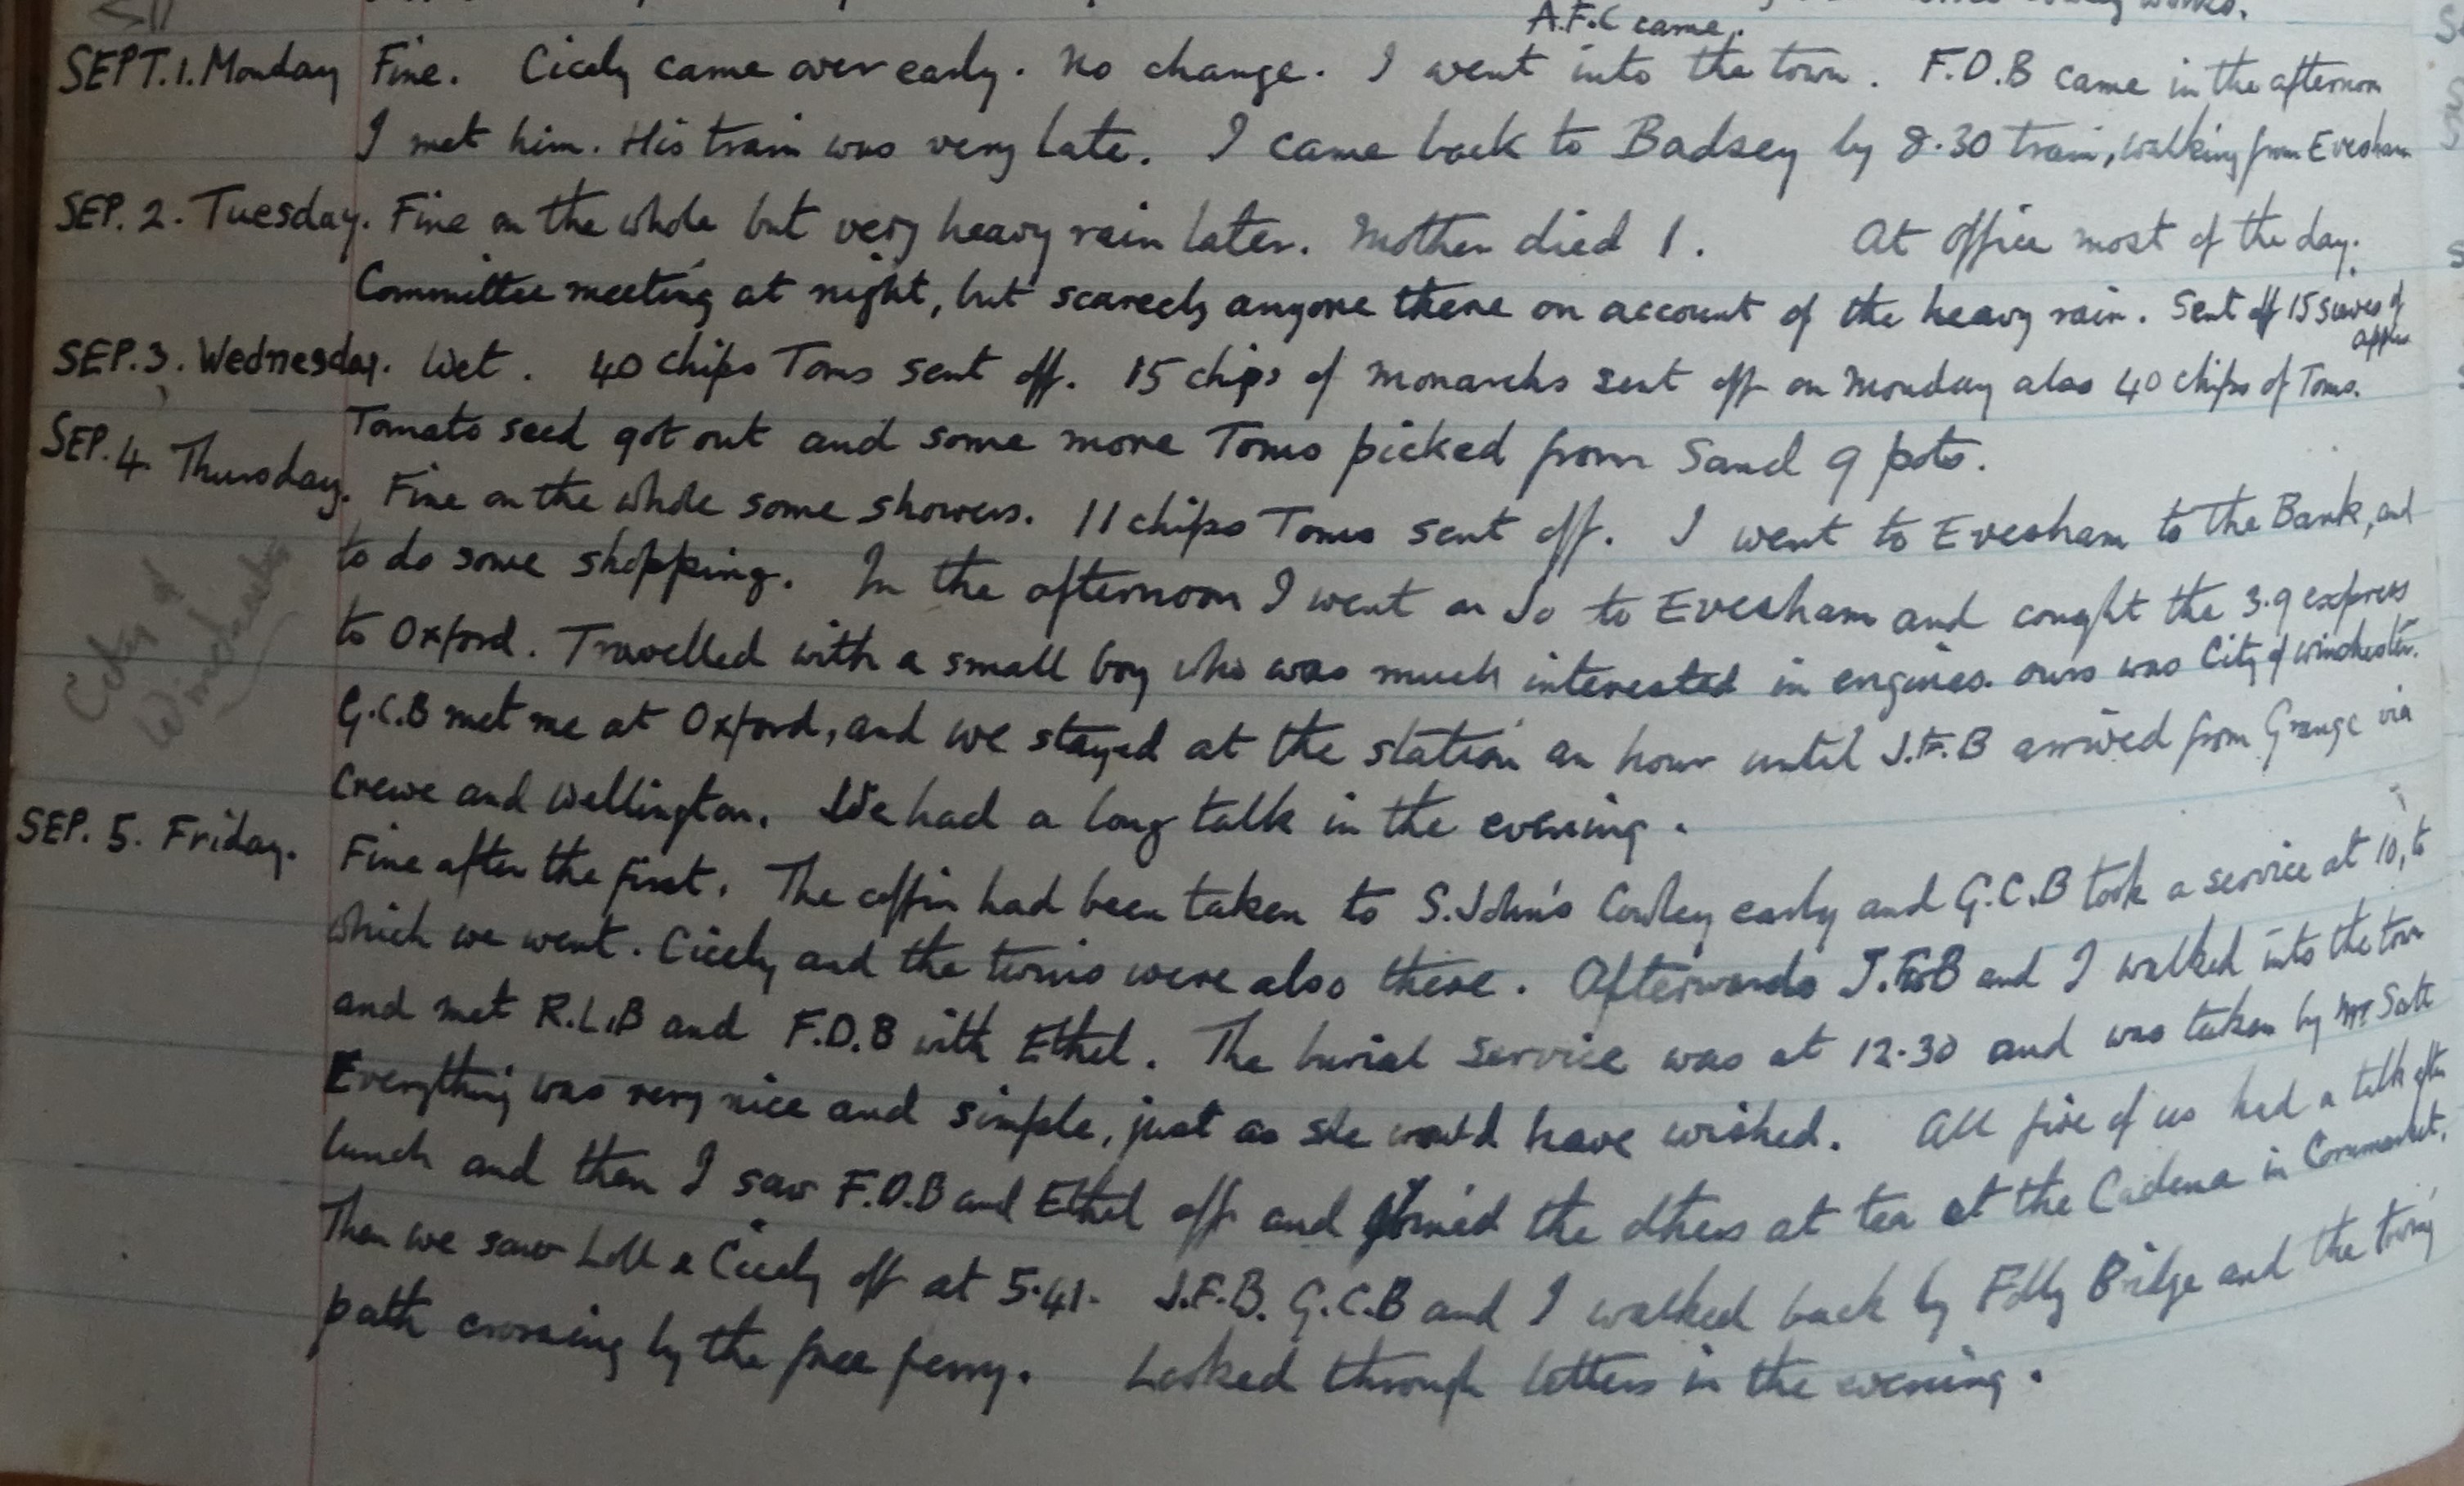 A.F.C came.
SEPT. 1. Monday Fine. Cicely came over early. No change. I went into the town. F.D.B came in the afternoon
I met him. His train was very late. I came back to Badsey by 8.30 train, walking from Evesham
SEP. 2. Tuesday. Fine on the whole but very heavy rain later. Mother died 1. At office most of the day.
Committee meeting at night, but scarcely anyone there on account of the heavy rain. Sent off 15 sieves of
apples
SEP. 3. Wednesday. Wet. 40 chips Toms sent off. 15 chips of Monarchs sent off on Monday also 40 chips of Toms.
Tomato seed got out and some more Toms picked from Sand 9 pots.
SEP. 4. Thursday. Fine on the whole some showers. 11 chips Toms sent off. I went to Evesham to the Bank, and
to do some shopping. In the afternoon I went on to Evesham and caught the 3.9 express
to Oxford. Travelled with a small boy who was much interested in engines. ours was City of Winchester.
City of
Winchester
G.C.B met me at Oxford, and we stayed at the station an hour until J.F.B arrived from Grange via
Crewe and Wellington. We had a long talk in the evening.
SEP. 5. Friday. Fine after the first. The coffin had been taken to S. John's Cowley early and G.C.B took a service at 10, to
which we went. Cicely and the twins were also there. Afterwards J.F.B and I walked into the town
and met R.L.B and F.D.B with Ethel. The burial service was at 12.30 and was taken by Mr
Everything was very nice and simple, just as she would have wished. All five of us had a talk after
lunch and then I saw F.D.B and Ethel off and joined the others at tea at the Cadena in Cornmarket.
Then we saw Loll & Cicely off at 5.41. J.F.B. G.C.B and I walked back by Folly Bridge and the towing
path crossing by the free ferry. Looked through letters in the evening.